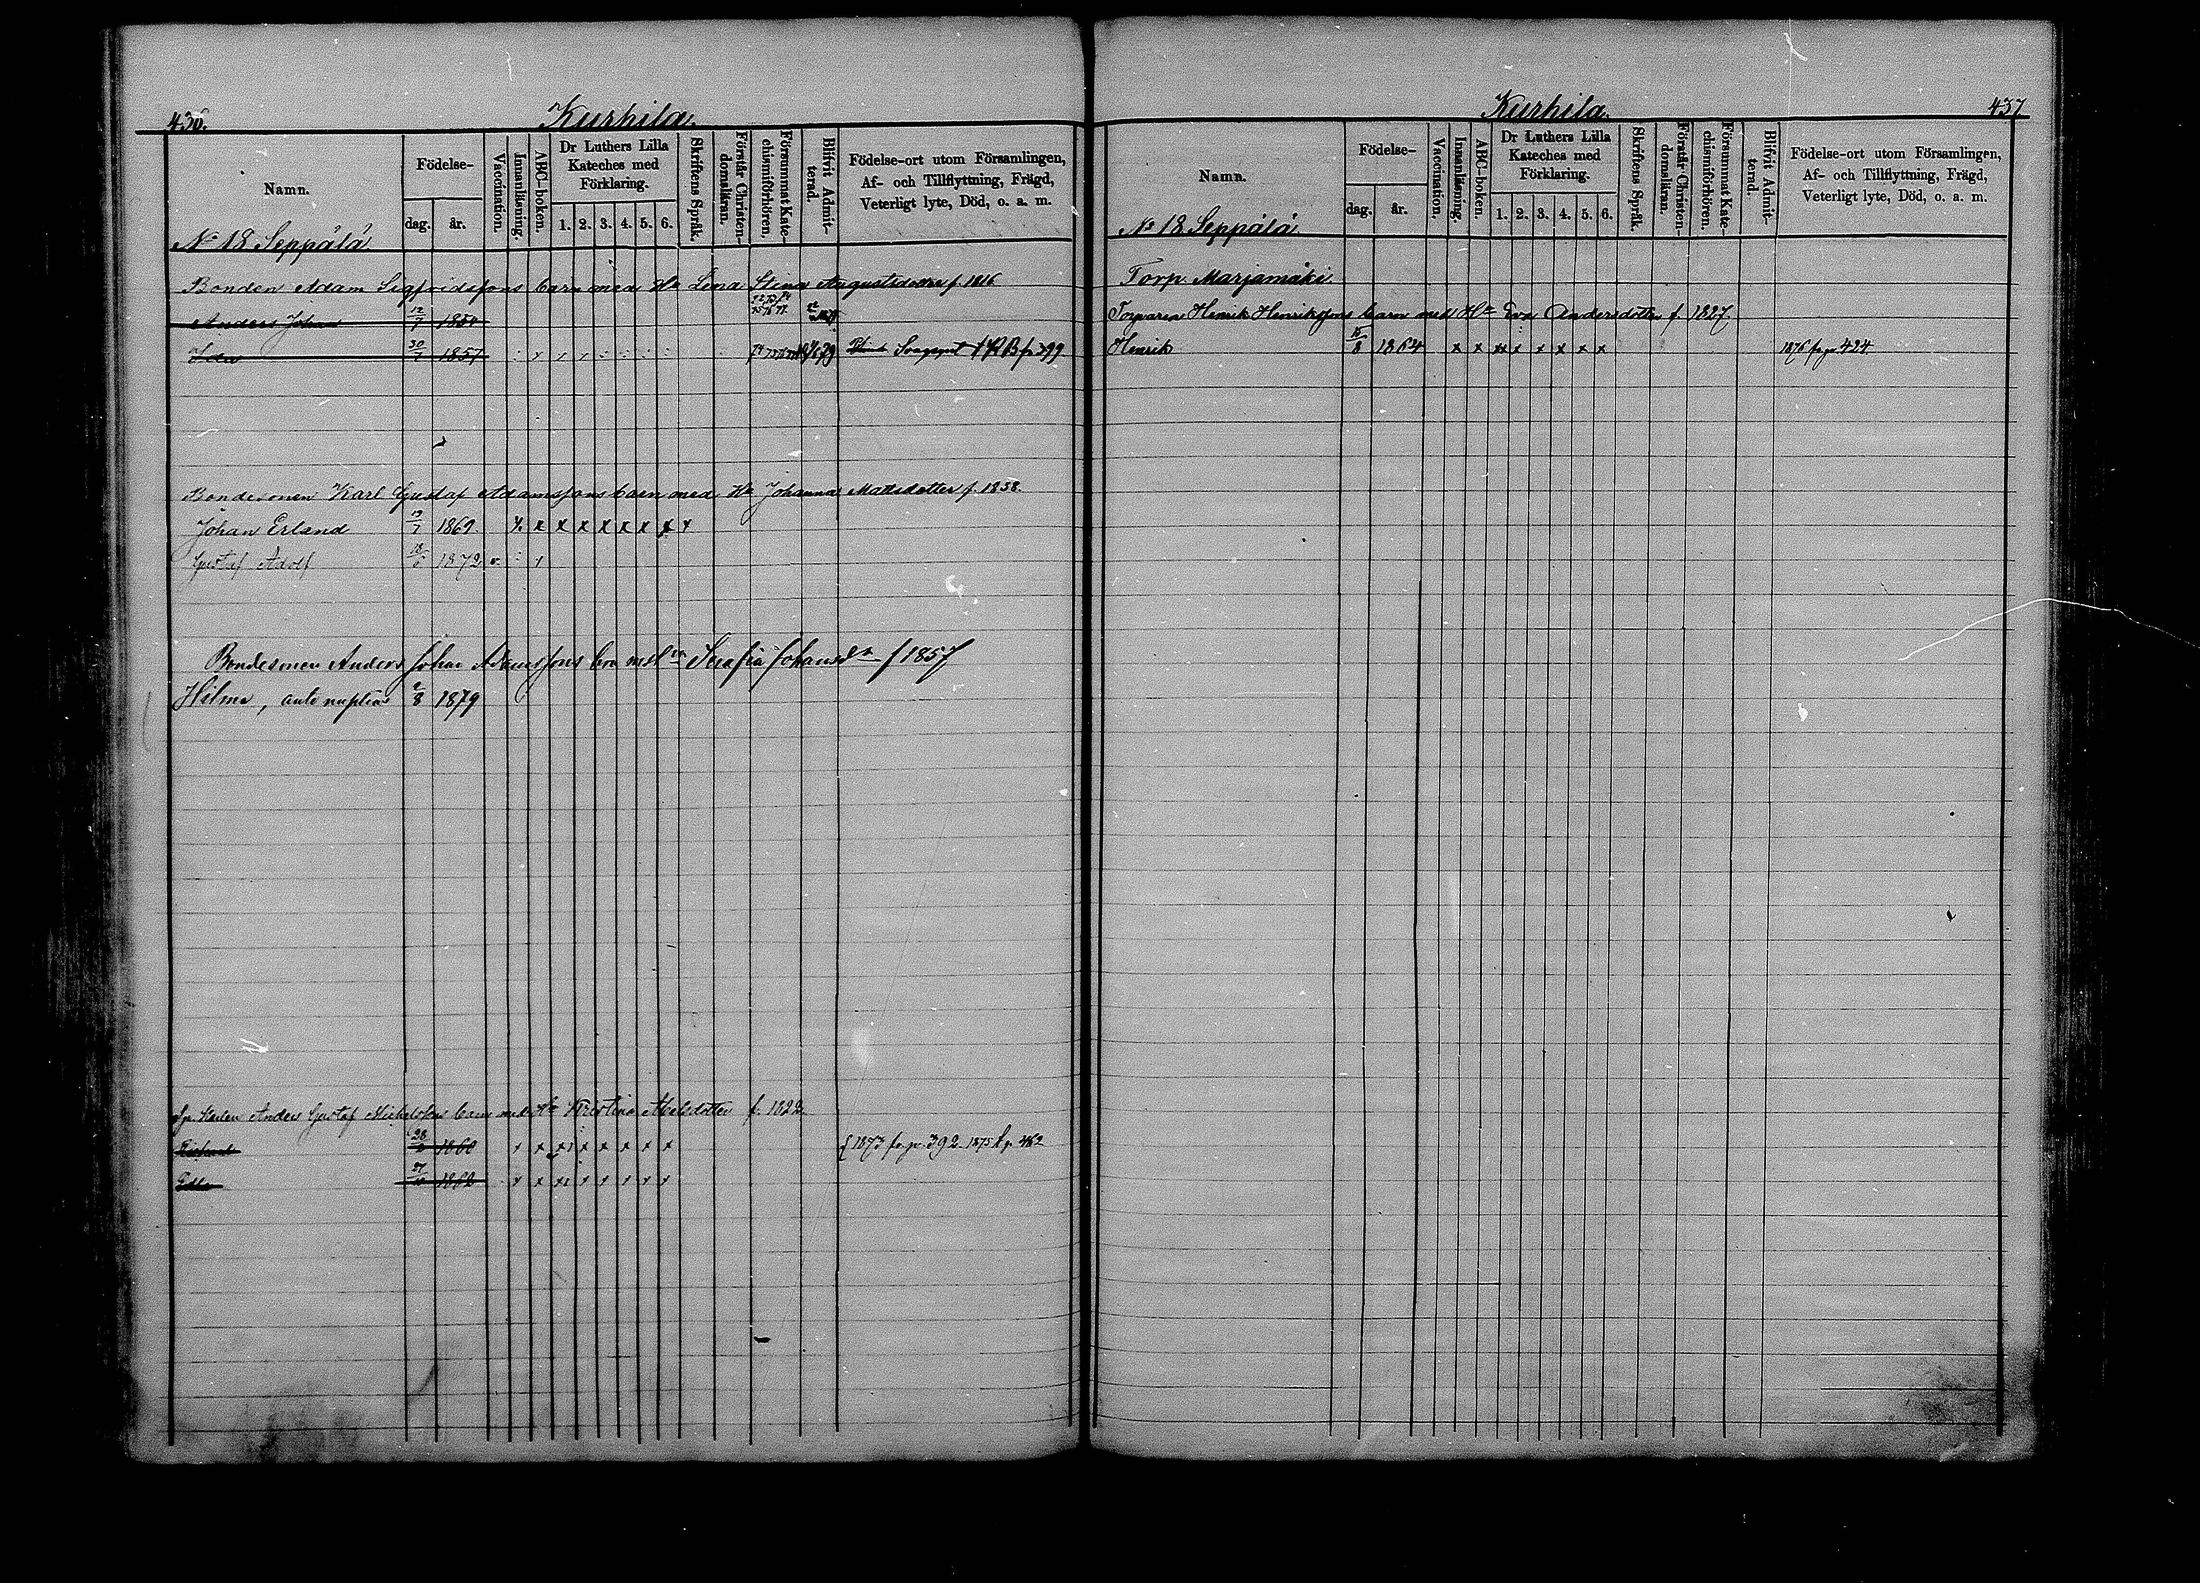 436.
Kurhila.
Namn.
Födelse-
dag.
år.
Vaccination.
Innanläsning.
ABC-boken.
Dr Luthers Lilla
Kateches med
Förklaring.
1. 2. 3. 4. 5. 6.
Skriftens Språk.
Förstår Christen-
domsläran.
Försummat Kate-
chismiförhören.
Blifvit Admit-
terad.
Födelse-ort utom Församlingen,
Af- och Tillflyttning, Frägd,
Veterligt lyte, Död, o. a. m.
No 18 Seppälä
Bonden Adam Sigfridssons barn med Hu Lena Stina Augustsdotter f. 1816
Anders Johan 12/7 1850
Ida 30/7 1857
Bondesonen Karl Gustaf Adamssons barn med Hu Johanna Mattsdotter f. 1838.
Johan Erland 19/7 1869. x x x x x x x x x
Gustaf Adolf 1872
Bondesonen Anders Johan Adamssons brn med Hu Serafia Johansdr f 1857
Hilma, ante nuptias 2/8 1879
Anders Gustaf Michelssons barn med Hu Kristina Abelsdotter f. 1822
28 1860 x x x x x x x x
{1873 fr. p. 392. 1875 t. p. 462
Edla 27/10 1862 x x x x x x x x
437
Kurhila.
Namn.
Födelse-
dag.
år.
Vaccination.
Innanläsning.
ABC-boken.
Dr Luthers Lilla
Kateches med
Förklaring.
1. 2. 3. 4. 5. 6.
Skriftens Språk.
Förstår Christen-
domsläran.
Försummat Kate-
chismiförhören.
Blifvit Admit-
terad.
Födelse-ort utom Församlingen,
Af- och Tillflyttning, Frägd,
Veterligt lyte, Död, o. a. m.
No 18 Seppälä
Torp. Marjamäki.
Torparen Henrik Henrikssons barn med Hu Eva Andersdotter f. 1827
Henrik 15/8 1864 x x xx x x x x x 1876 fr. p. 424